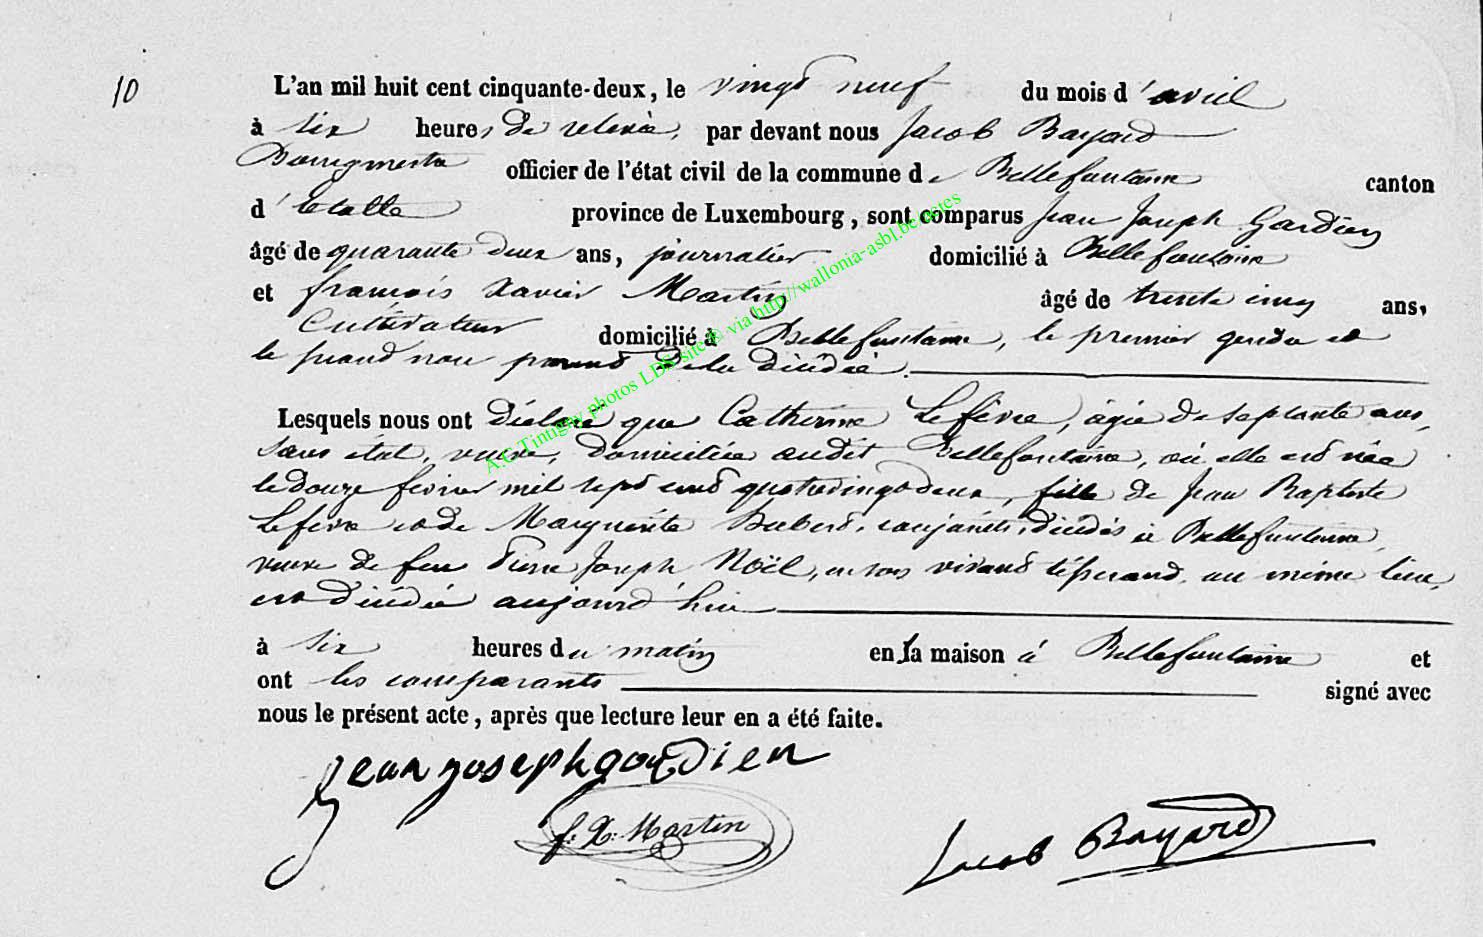 10
L'an mil huit cent cinquante-deux, le vingt neuf du mois d'avril
à six heures de relevée, par devant nous Jacob Bayard
Bourgmestre officier de l'état civil de la commune de Bellefontaine canton
d'Etalle province de Luxembourg, sont comparus Jean Joseph Gardien
âgé de quarante deux ans, journalier domicilié à Bellefontaine
et françois Xavier Martin âgé de trente cinq ans,
Cultivateur domicilié à Bellefontaine, le premier gendre et
le second non parent de la décédée.
Lesquels nous ont déclaré que Catherine Lefèvre, âgée de septante ans,
sans état, veuve, domiciliée audit Bellefontaine, où elle est née
le douze février mil sept cent quatrevingt deux, fille de Jean Baptiste
Lefèvre et de Marguerite Hubert, conjoints, décédés à Bellefontaine,
veuve de feu Pierre Joseph Noël, en son vivant tisserand, au même lieu,
est décédée aujourd'hui
à six heures du matin en sa maison à Bellefontaine et
ont les comparants signé avec
nous le présent acte, après que lecture leur en a été faite.
jean joseph gardien
f. X. Martin
Jacob Bayard
A.C Tintigny photos LDS site © via http//wallonia-asbl.be actes